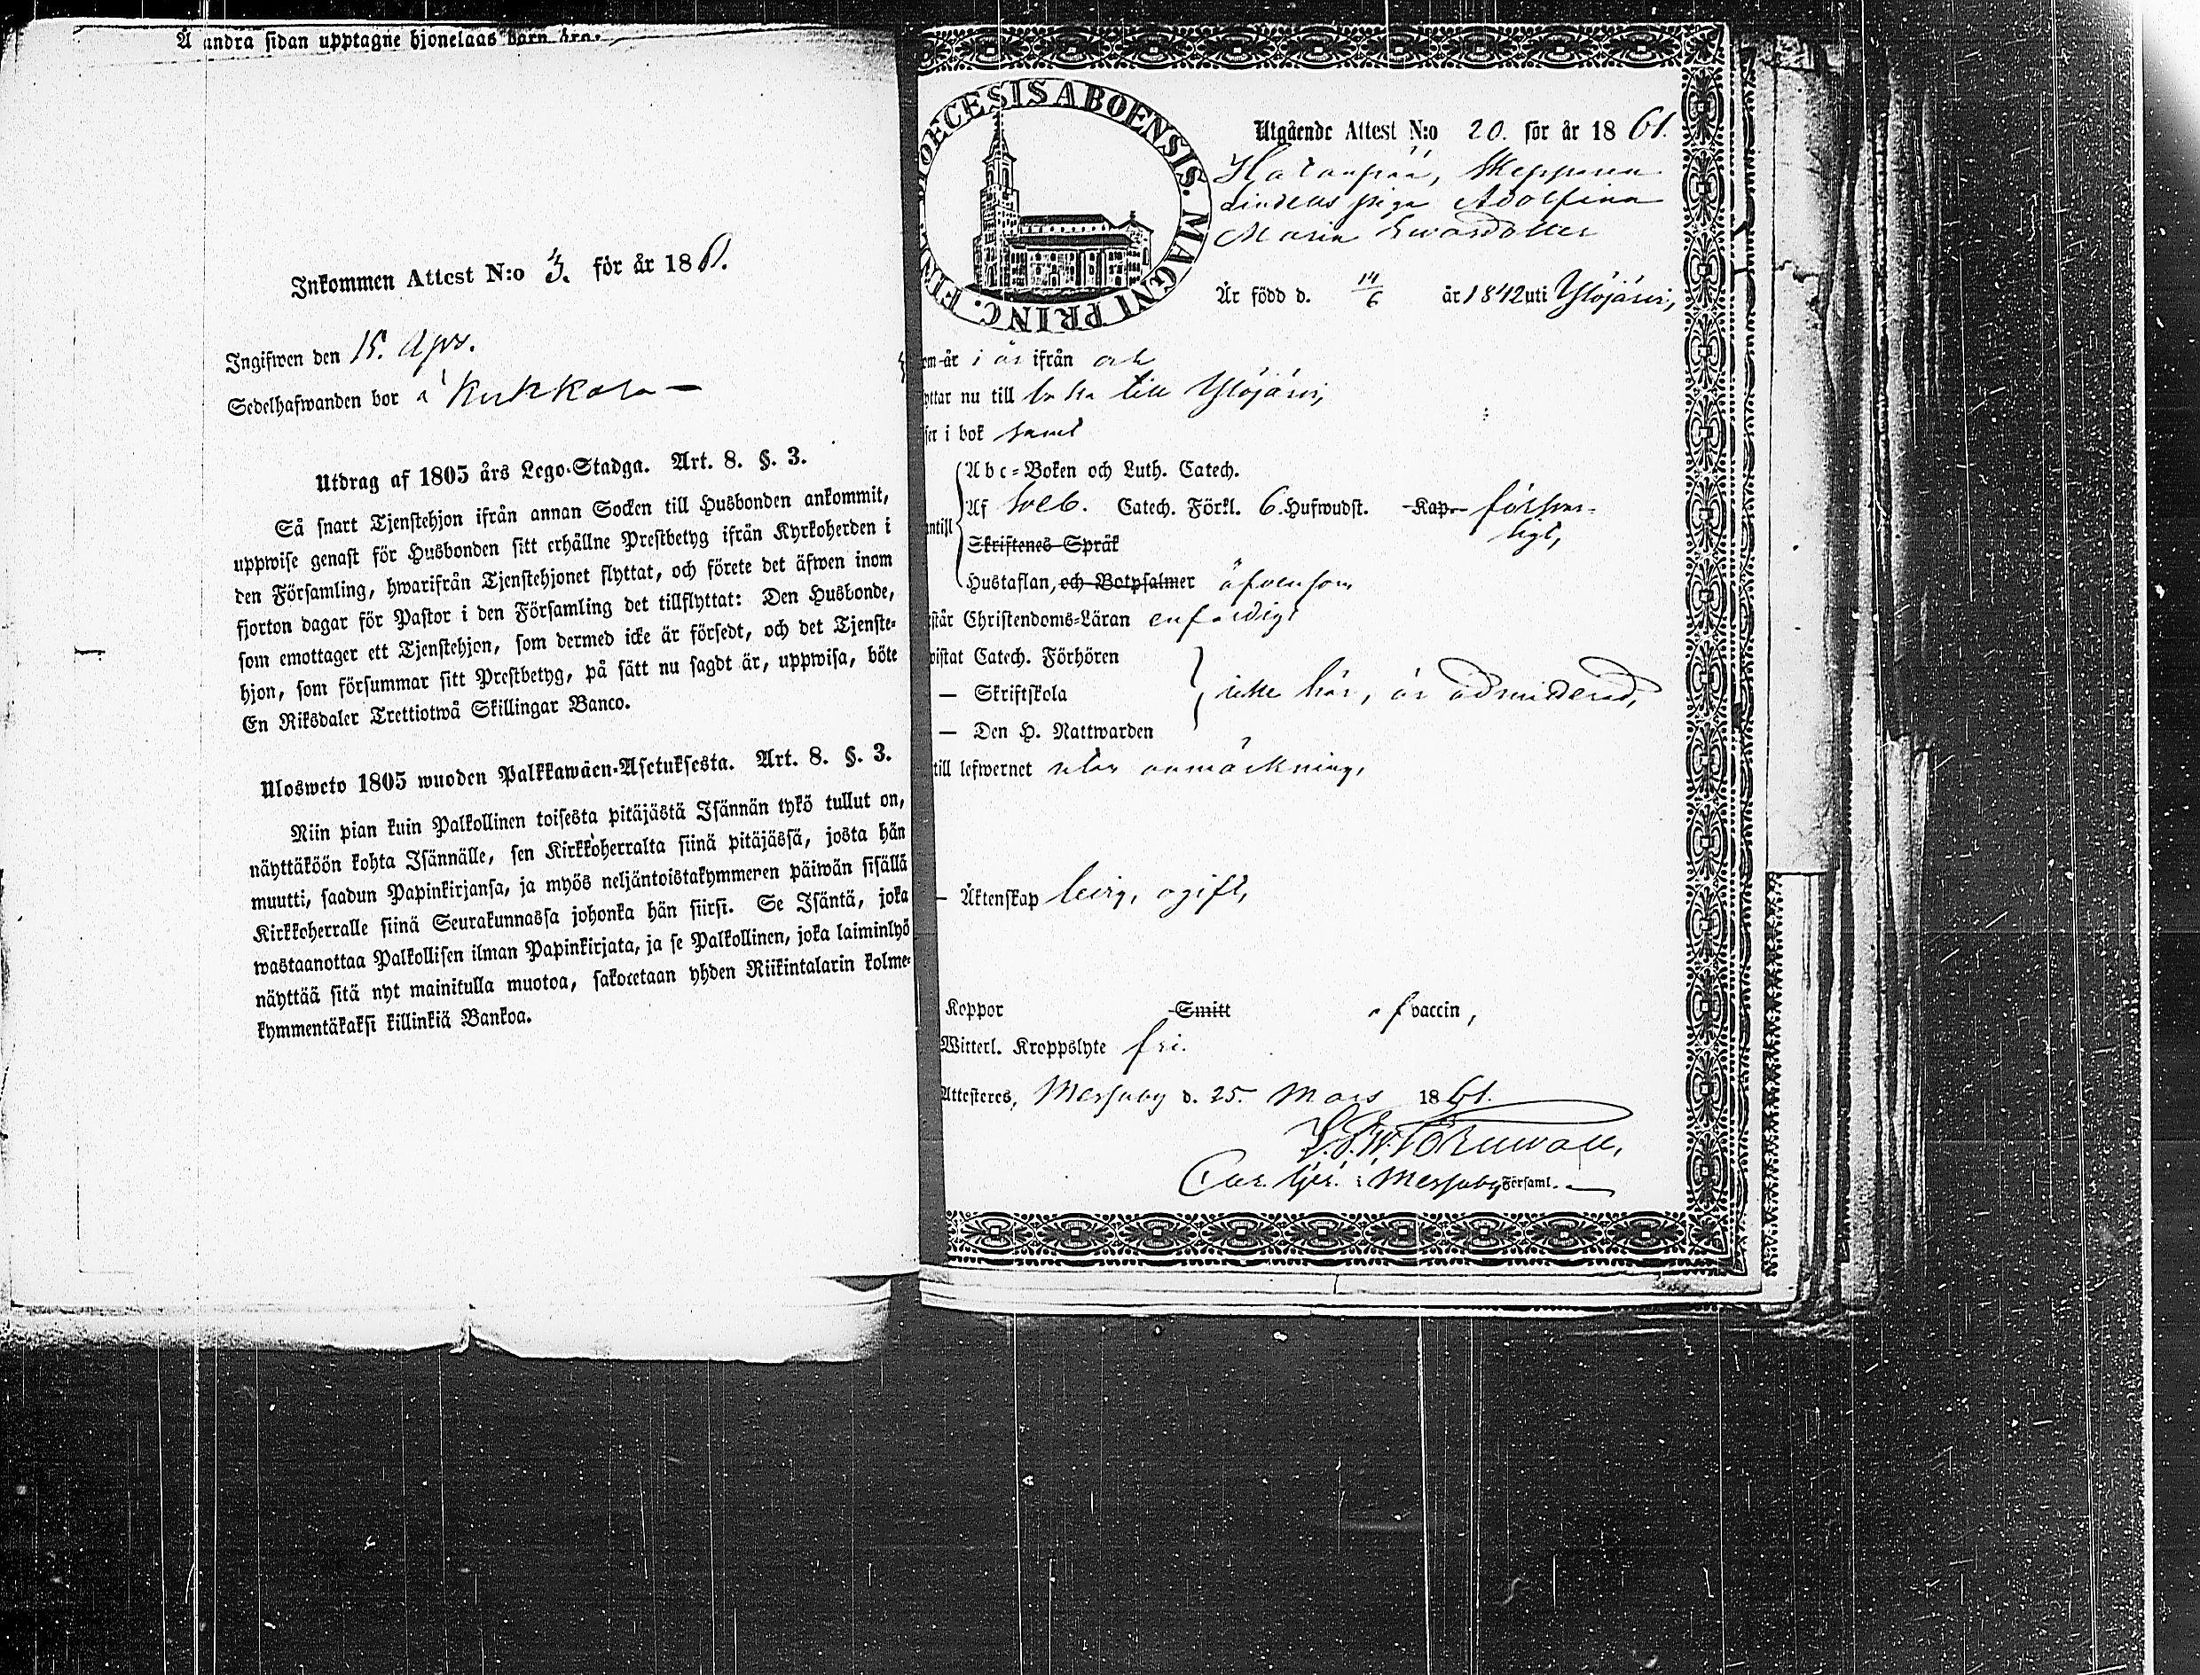 Å andra sidan upptagne hjonelags barn äro:
Inkommen Attest N:o 3. för år 1861.
Ingifwen den 15. Apr.
Sedelhafwanden bor å Kukkola —
Utdrag af 1805 års Lego-Stadga. Art. 8. §. 3.
Så snart Tjenstehjon ifrån annan Socken till Husbonden ankommit,
uppwise genast för Husbonden sitt erhällne Prestbetyg ifrån Kyrkoherden i
den Församling, hwarifrån Tjenstehjonet flyttat, och förete det äfwen inom
fjorton dagar för Pastor i den Församling det tillflyttat: Den Husbonde,
som emottager ett Tjenstehjon, som dermed icke är försedt, och det Tjenste-
hjon, som försummar sitt Prestbetyg, på sätt nu sagdt är, uppwisa, böte
En Riksdaler Trettiotwå Skillingar Banco.
Ulosweto 1805 wuoden Palkkawäen-Asetuksesta. Art. 8. §. 3.
Niin pian kuin Palkollinen toisesta pitäjästä Isännän tykö tullut on,
näyttäköön kohta Isännälle, sen Kirkkoherralta siinä pitäjässä, josta hän
muutti, saadun Papinkirjansa, ja myös neljäntoistakymmeren päiwän sisällä
Kirkkoherralle siinä Seurakunnassa johonka hän siirsi. Se Isäntä, joka
wastaanottaa Palkollisen ilman Papinkirjata, ja se Palkollinen, joka laiminlyö
näyttää sitä nyt mainitulla muotoa, sakocetaan yhden Riikintalarin kolme-
kymmentäkaksi killinkiä Bankoa.
DIOECESIS ABOENSIS. MAGNI PRINC. FINL.
Utgående Attest N:o 20. för år 1861.
Hatanpää, Skepparen
Lindells piga Adolfina
Maria Ewardotter
Är född d. 14/6 år 1842 uti Ylöjärvi,
om år i år ifrån och
yttar nu till baka till Ylöjärvi,
ser i bok samt
Abc-Boken och Luth. Catech.
antill Af Sveb. Catech. Förkl. 6. Hufwudst. Kap. försvar-
ligt,
Skriftenes Språk
Hustaflan, och Botpsalmer äfvensom
står Christendoms-Läran enfaldigt
wistat Catech. Förhören
— Skriftskola icke här, är admitterad,
— Den H. Nattwarden
till lefwernet utan anmärkning,
— Äktenskap ledig, ogift,
Koppor Smitt af vaccin,
Witterl. Kroppslyte fri.
Attesteres, Messuby d. 25. Mars 1861.
i Messuby Församl. —